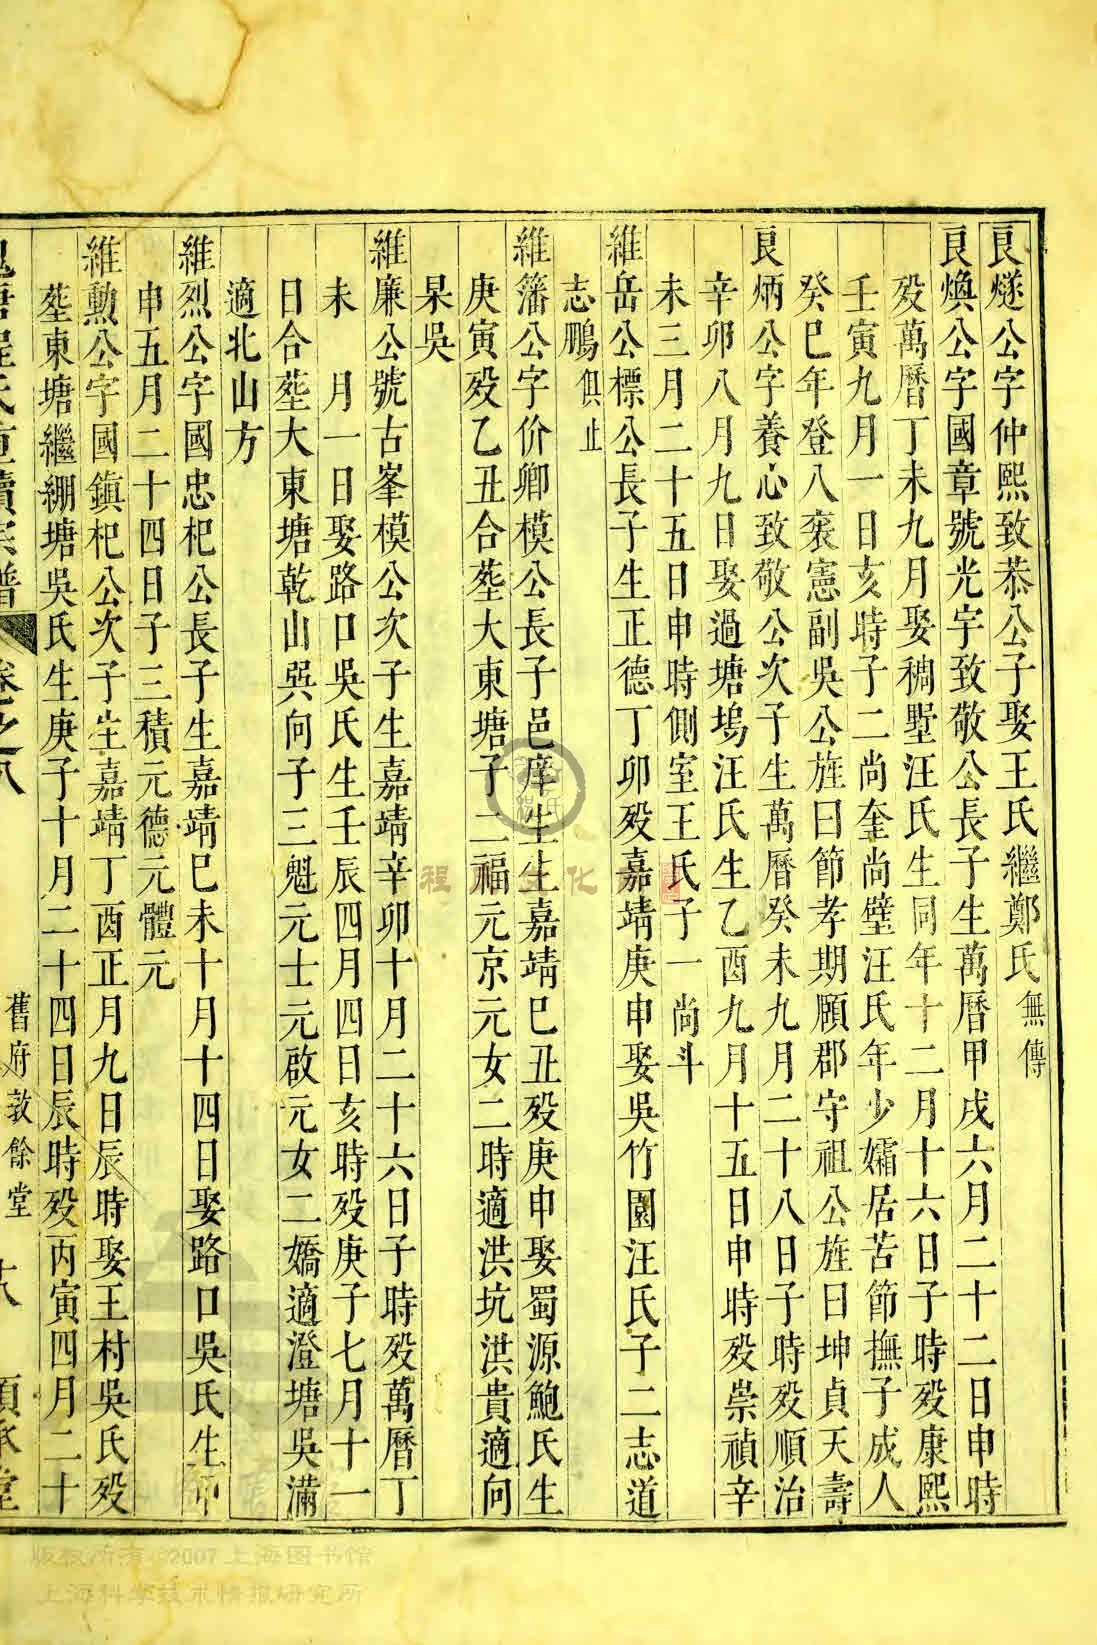 良燧公字仲熙致恭公子娶王氏繼鄭氏無傳
良煥公字國章號光宇致敬公長子生萬曆甲戌六月二十二日申時
歿萬曆丁未九月娶稠墅汪氏生同年十二月十六日子時歿康熙
壬寅九月一日亥時子二尚奎尚璧汪氏年少孀居苦節撫子成人
癸巳年登八袠憲副吳公旌曰節孝期頤郡守祖公旌曰坤貞天壽
良炳公字養心致敬公次子生萬曆癸未九月二十八日子時歿順治
辛卯八月九日娶過塘塢汪氏生乙酉九月十五日申時歿崇禎辛
未三月二十五日申時側室王氏子一尚斗
維岳公標公長子生正德丁卯歿嘉靖庚申娶吳竹園汪氏子二志道
志鵬俱止
維籓公字价卿模公長子邑庠生生嘉靖己丑歿庚申娶蜀源鮑氏生
庚寅歿乙丑合塟大東塘子二福元京元女二時適洪坑洪貴適向
杲吳
維廉公號古峯模公次子生嘉靖辛卯十月二十六日子時歿萬曆丁
未 月一日娶路口吳氏生壬辰四月四日亥時歿庚子七月十一
日合塟大東塘乾山巽向子三魁元士元啟元女二嬌適澄塘吳滿
適北山方
維烈公字國忠杞公長子生嘉靖己未十月十四日娶路口吳氏生
申五月二十四日子三積元德元體元
維勳公字國鎮杞公次子生嘉靖丁酉正月九日辰時娶王村吳氏歿
塟東塘繼綳塘吳氏生庚子十月二十四日辰時歿丙寅四月二十
程氏 續宗譜 卷之八 舊府敦餘堂 十八 順承堂
程氏文化
版权所有©2007上海图书馆
上海科学技术情报研究所